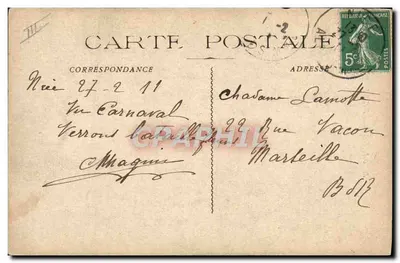 III
CARTE POSTALE
CORRESPONDANCE
ADRESSE
5c
POSTES
Nice 27-2 11
Vu Carnaval
Verrons bataille
Madame Lamotte
22 Rue Vacon
Marseille
B d R
CPHRAPHIL